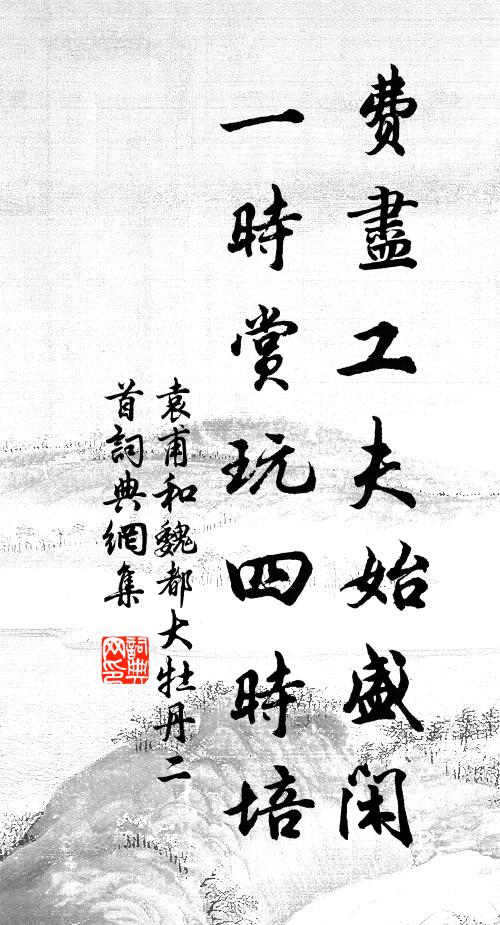 費盡工夫始盛開
一時賞玩四時培
袁甫和魏都大牡丹二
首詞典網集
詞典
网印